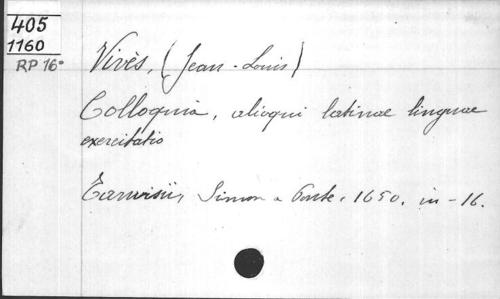 405
1160
RP 16°
Vivès, (Jean-Louis)
Colloquia, alioqui latinae linguae
exercitatio
Tarvisii, Simon a Ponte, 1650. in-16.